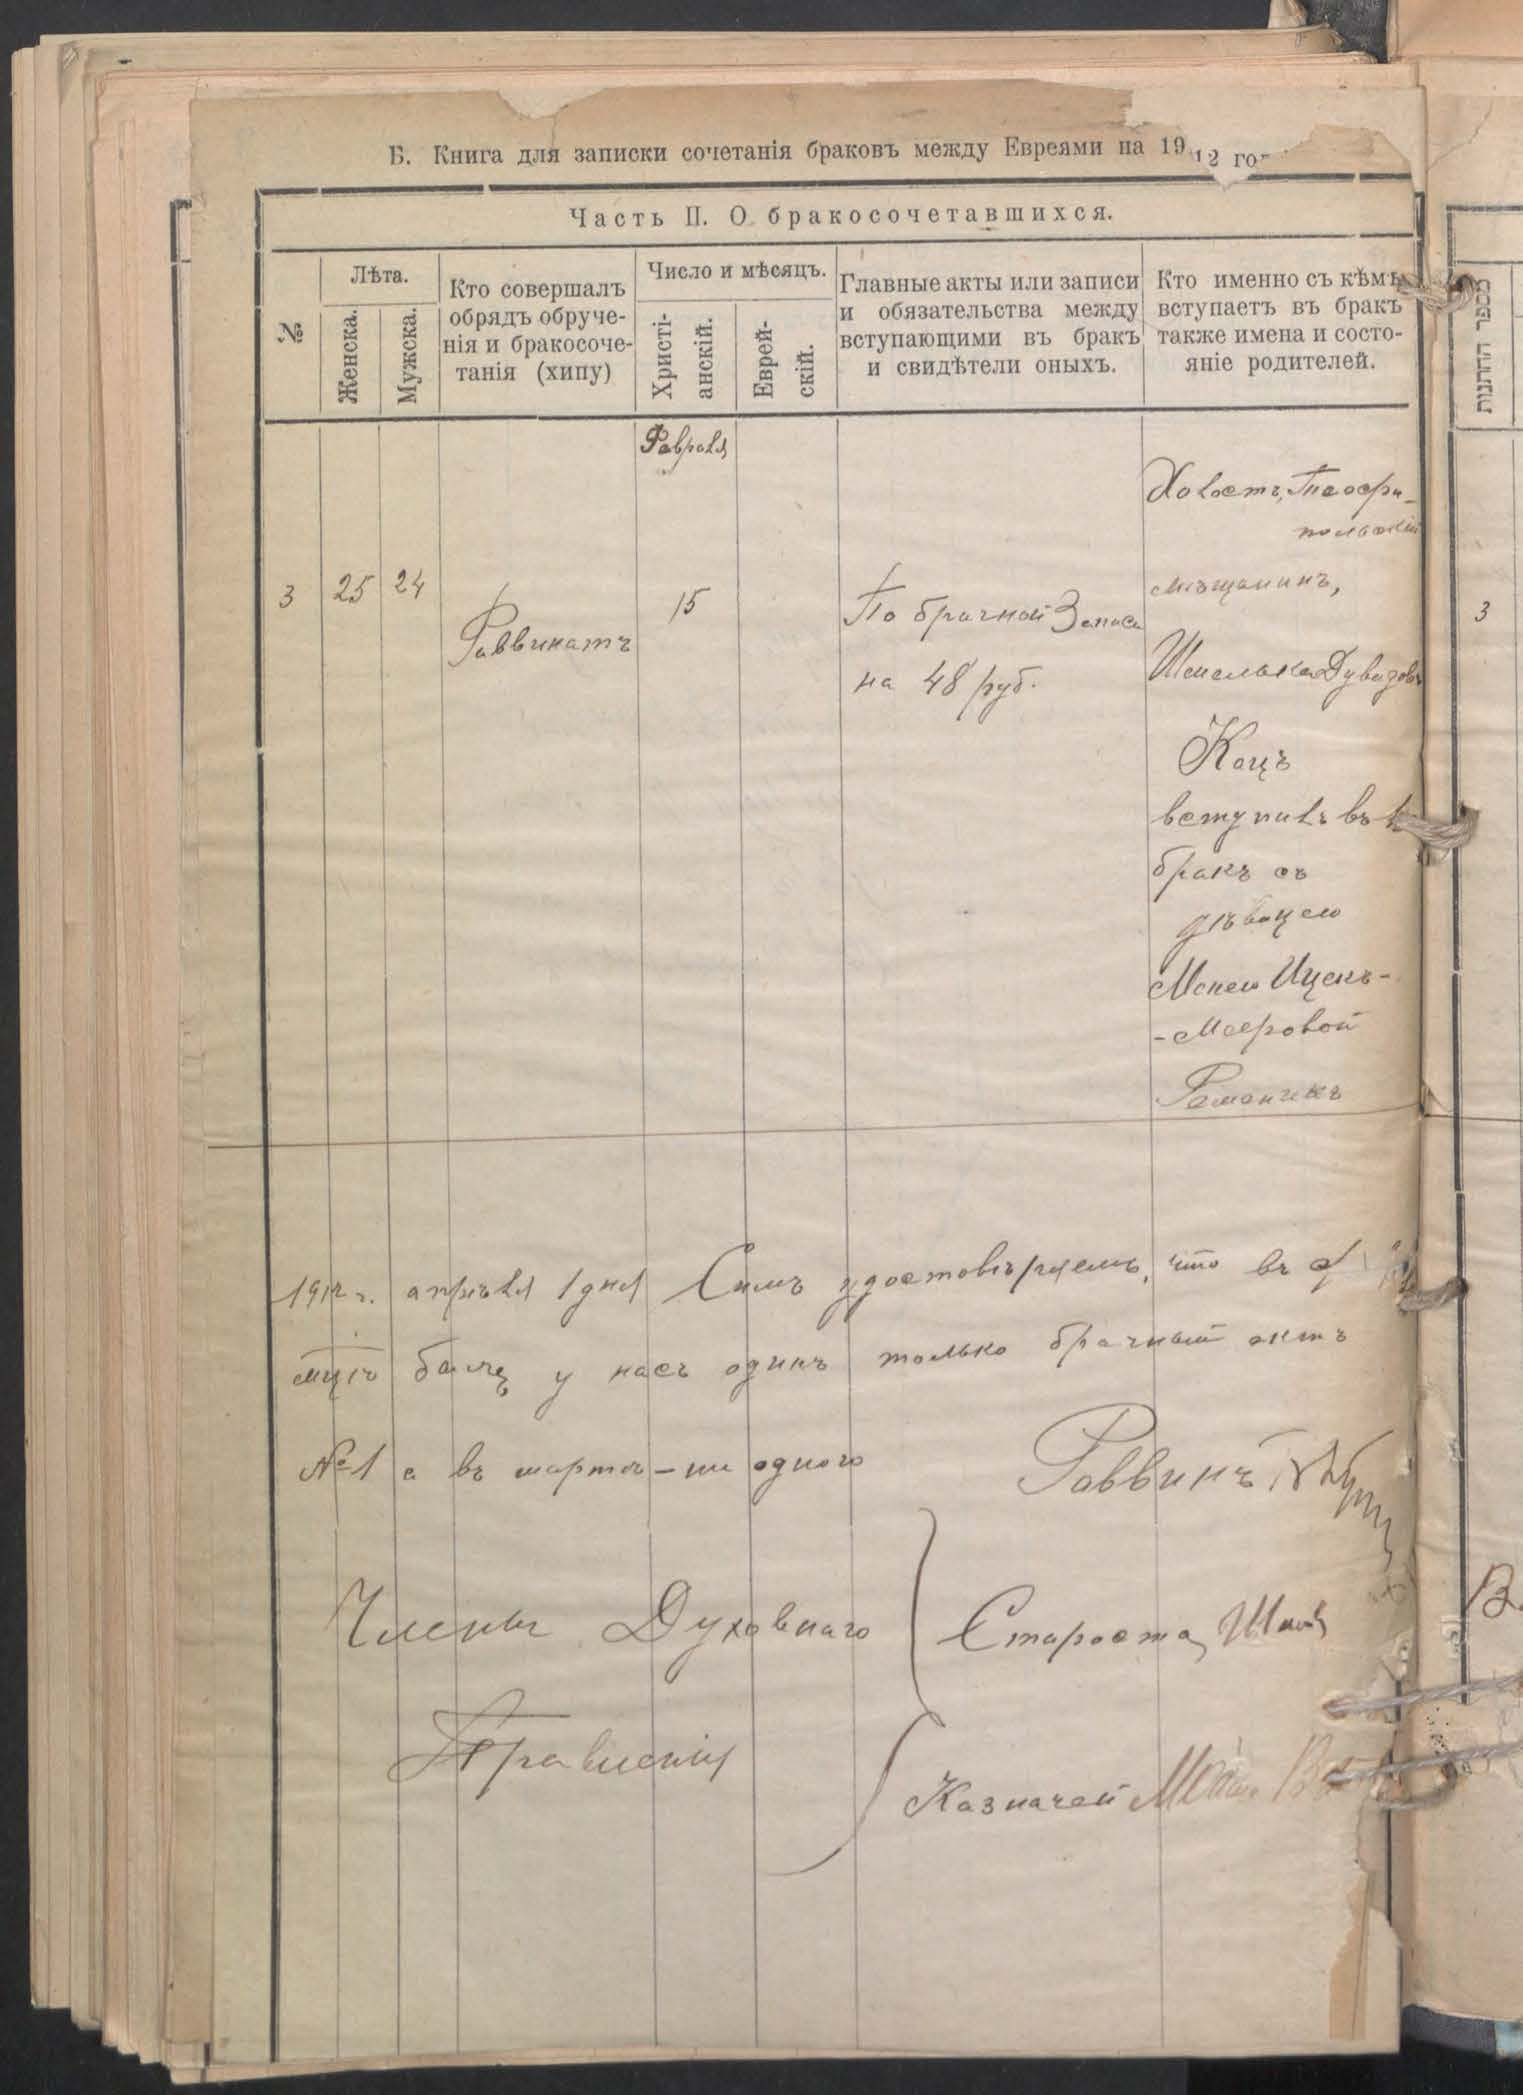 Б. Книга для записки сочетанія браковъ между Евреями на 1912 год
Часть II. О бракосочетавшихся.
№
Лѣта.
Женска.
Мужска.
Кто совершалъ
обрядъ обруче-
нія и бракосоче-
танія (хипу)
Число и мѣсяцъ.
Христі-
анскій.
Еврей-
скій.
Главные акты или записи
и обязательства между
вступающими въ бракъ
и свидѣтели оныхъ.
Кто именно съ кѣмъ
вступаетъ въ бракъ
также имена и состо-
яніе родителей.
מספר החתנות
Февраля
3
25
24
Раввинатъ
15
По брачной Записи
на 48 руб.
Холостъ, Теофи-
польскій
мѣщанинъ,
Шмелька Дувидовъ
Кацъ
вступилъ въ
бракъ съ
дѣвицею
Менею Ицекъ-
-Мееровой
3
1912 г. апрѣля 1 дня Симъ удостовѣряемъ, что въ
мцѣ былъ у насъ одинъ только брачный актъ
№ 1 а въ мартѣ - ни одного
Раввинъ
Члены Духовнаго
Правленія
Староста
Казначей